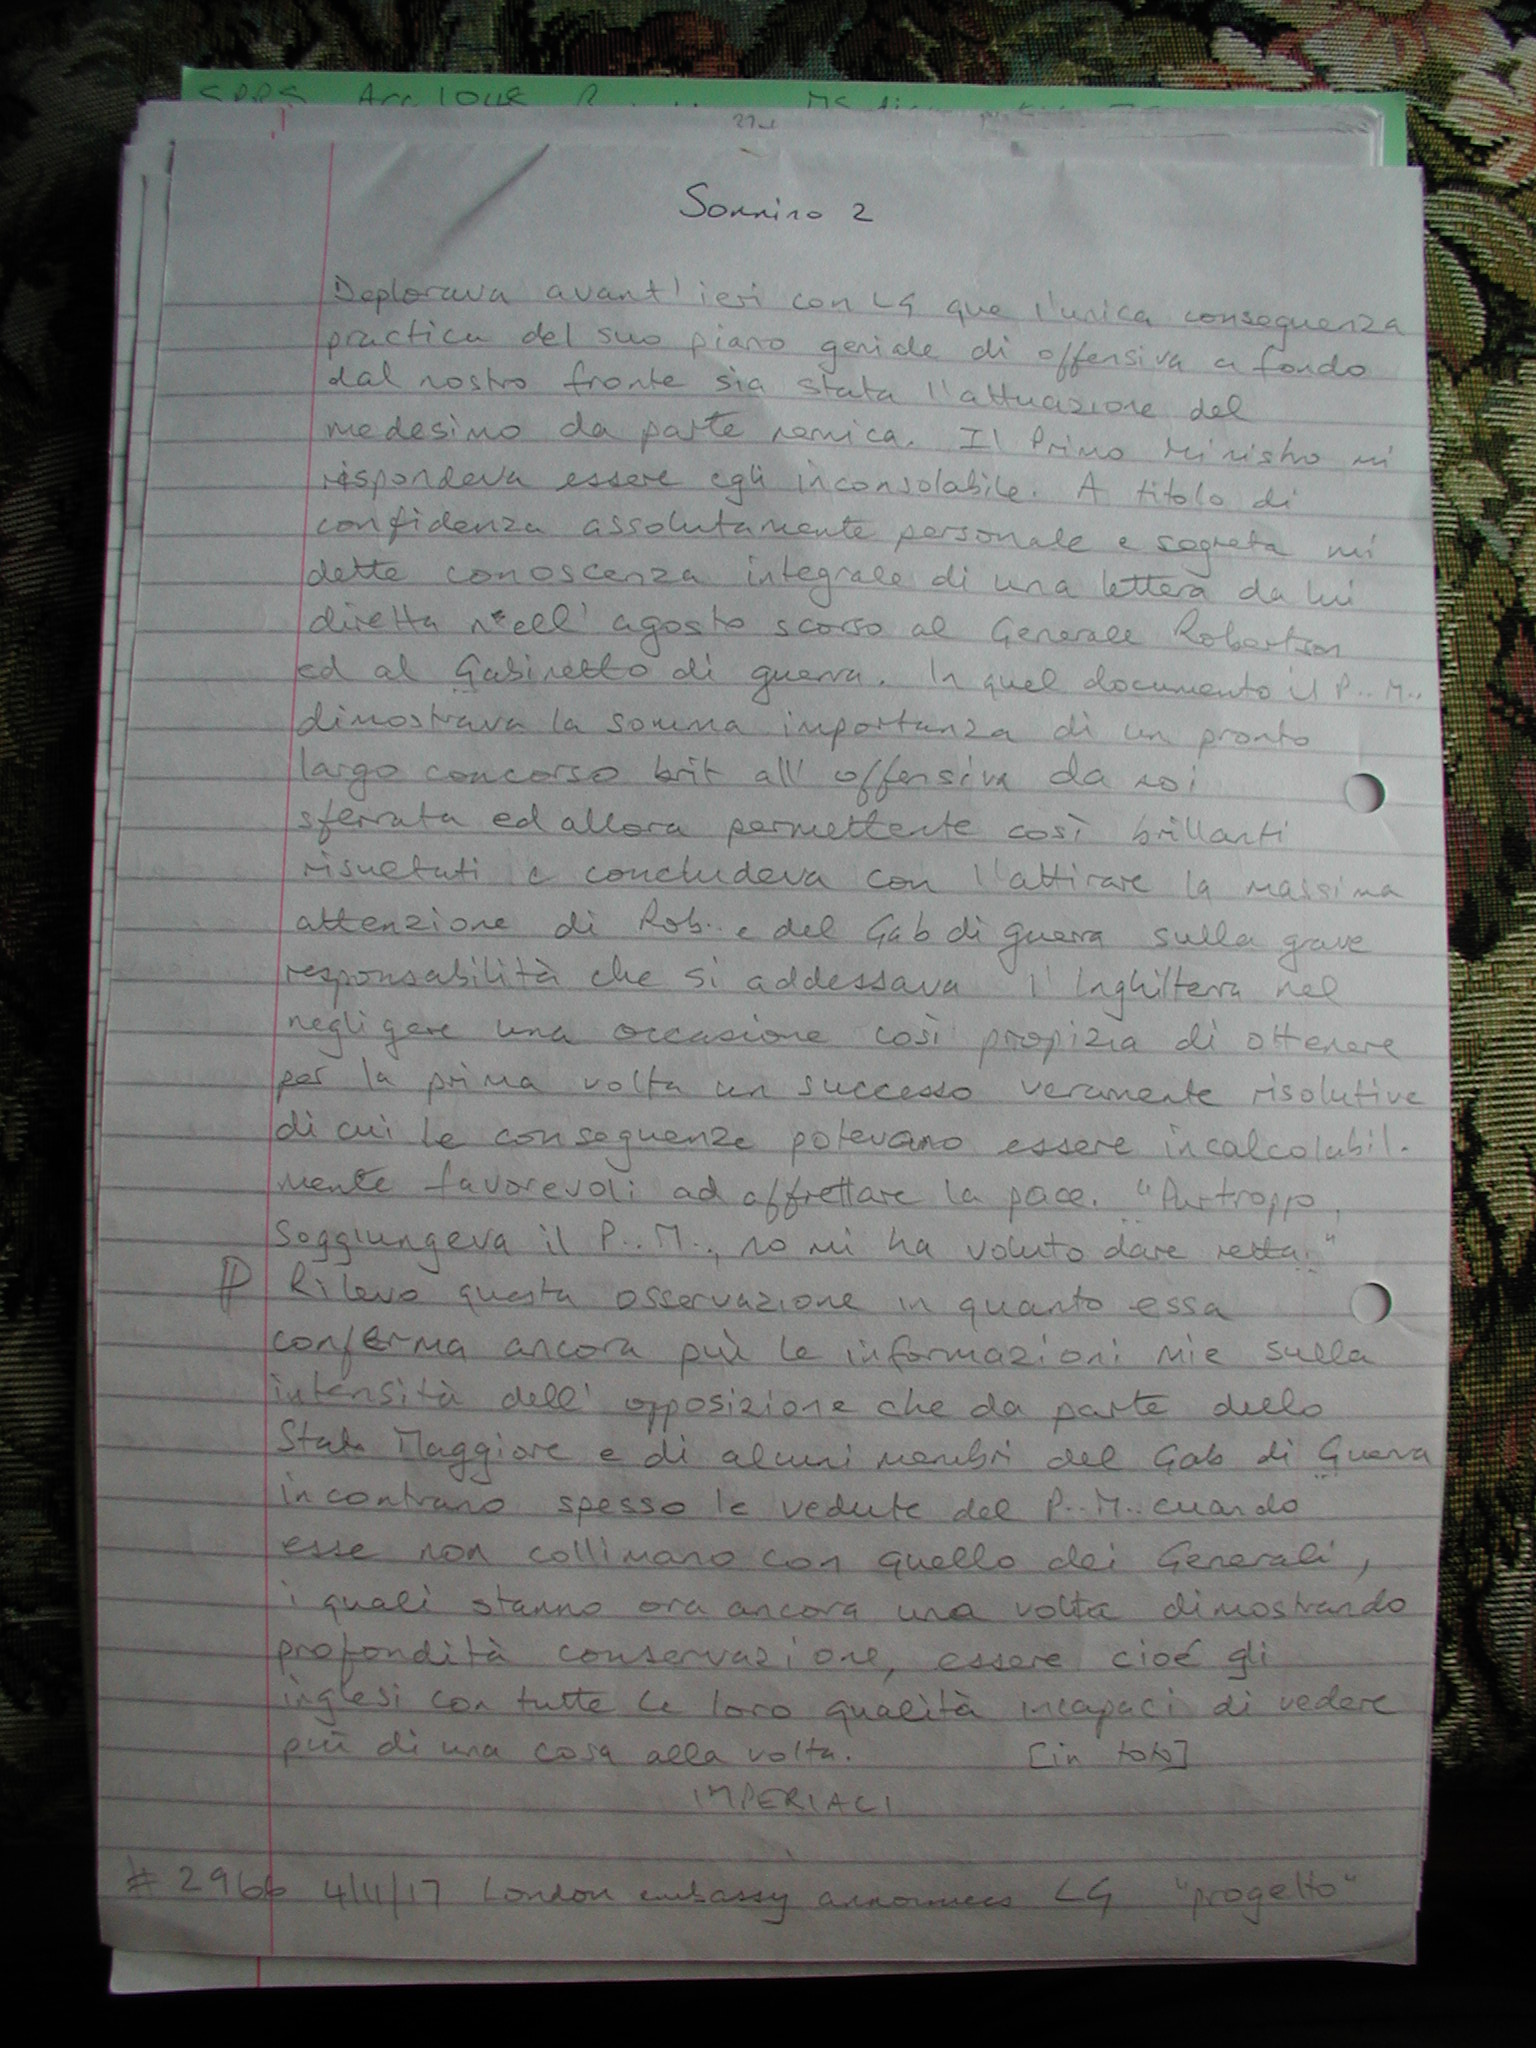 Sonnino 2
Deplorava avant'ieri con LG que l'unica conseguenza
practica del suo piano geniale di offensiva a fondo
dal nostro fronte sia stata l'attuazione del
medesimo da parte nemica. Il Primo Ministro mi
rispondeva essere egli inconsolabile. A titolo di
confidenza assolutamente personale e segreta mi
dette conoscenza integrale di una lettera da lui
diretta nell' agosto scorso al Generale Robertson
ed al Gabinetto di guerra. In quel documento il P..M..
dimostrava la somma importanza di un pronto
largo concorso brit all' offensiva da noi
sferrata ed allora permettente così brillanti
risultati e concludeva con l'attirare la massima
attenzione di Rob.. e del Gab di guerra sulla grave
responsabilità che si addessava l'Inghilterra nel
negligere una occasione così propizia di ottenere
per la prima volta un successo veramente risolutive
di cui le conseguenze potevano essere incalcolabil-
mente favorevoli ad affrettare la pace. "Purtroppo,
soggiungeva il P..M.., no mi ha voluto dare retta."
P Rilevo questa osservazione in quanto essa
conferma ancora più le informazioni mie sulla
intensità dell' opposizione che da parte dello
Stato Maggiore e di alcuni membri del Gab di Guerra
incontrano spesso le vedute del P..M.. cuando
esse non collimano con quello dei Generali,
i quali stanno ora ancora una volta dimostrando
profondità conservazione, essere cioé gli
inglesi con tutte le loro qualità incapaci di vedere
più di una cosa alla volta. [in toto]
IMPERIALI
# 2966 4/11/17 London embassy announces LG "progetto"